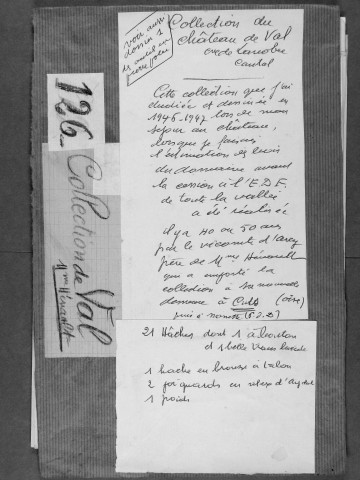 voir aussi
dessins
Collection du
château de Val
Lanobre
Cantal
126 Collection de Val
Mme Hénault
Cette collection que j'ai
étudiée et dessinée en
1946-1947 lors de mon
séjour au château,
lorsque je faisais
l'animation des
du domaine avant
la cession à l'E.D.F.
de toute la vallée
a été récoltée
il y a 40 ou 50 ans
par le vicomte d'Arcy
père de Mme Hénault
qui a emporté la
collection à sa nouvelle
demeure à (Oise)
puis à
21 Hâches dont 1 à bouton
et 1 belle
1 hache en bronze à talon
2 poignards en silex d'
1 poids